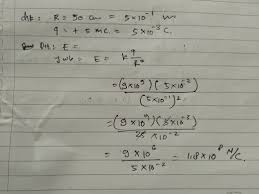 dik: R = 50 cm = 5 × 10⁻¹ m
q = + 5 mC. = 5 × 10⁻³ C.
Dit: E =
jwb: E = k q/R²
= (9 × 10⁹)(5 × 10⁻²) / (5 × 10⁻¹)²
= (9 × 10⁹)(5 × 10⁻³) / 25 × 10⁻²
= 9 × 10⁶ / 5 × 10⁻² = 1,8 × 10⁸ N/C.